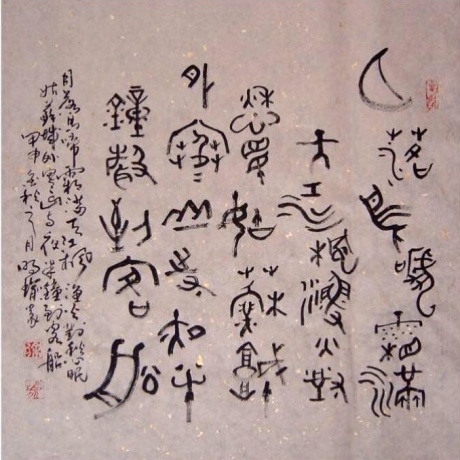 月落烏啼霜滿
天江楓漁火對
愁眠姑蘇城
外寒山寺夜半
鐘聲到客船
月落烏啼霜滿天江楓漁火對愁眠
姑蘇城外寒山寺夜半鐘聲到客船
甲申